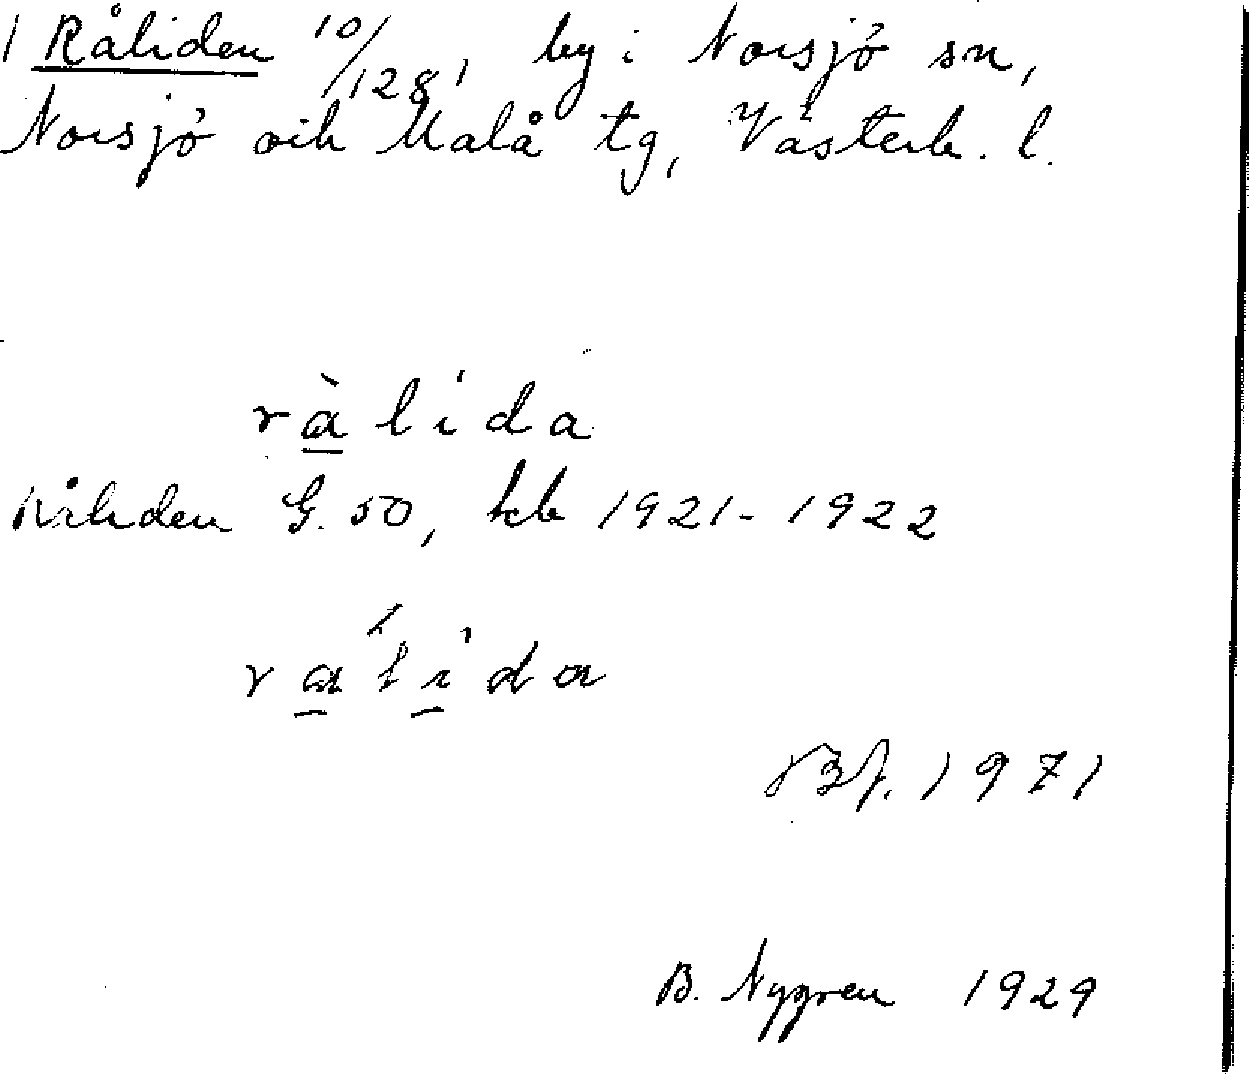 1 Råliden 10/128, by i Norsjö sn,
Norsjö och Malå tg, Västerb. l.
rà̱lida
Råliden G. 50, kb 1921-1922
ra̱li̱da
Bf. 1971
B. Nygren 1929